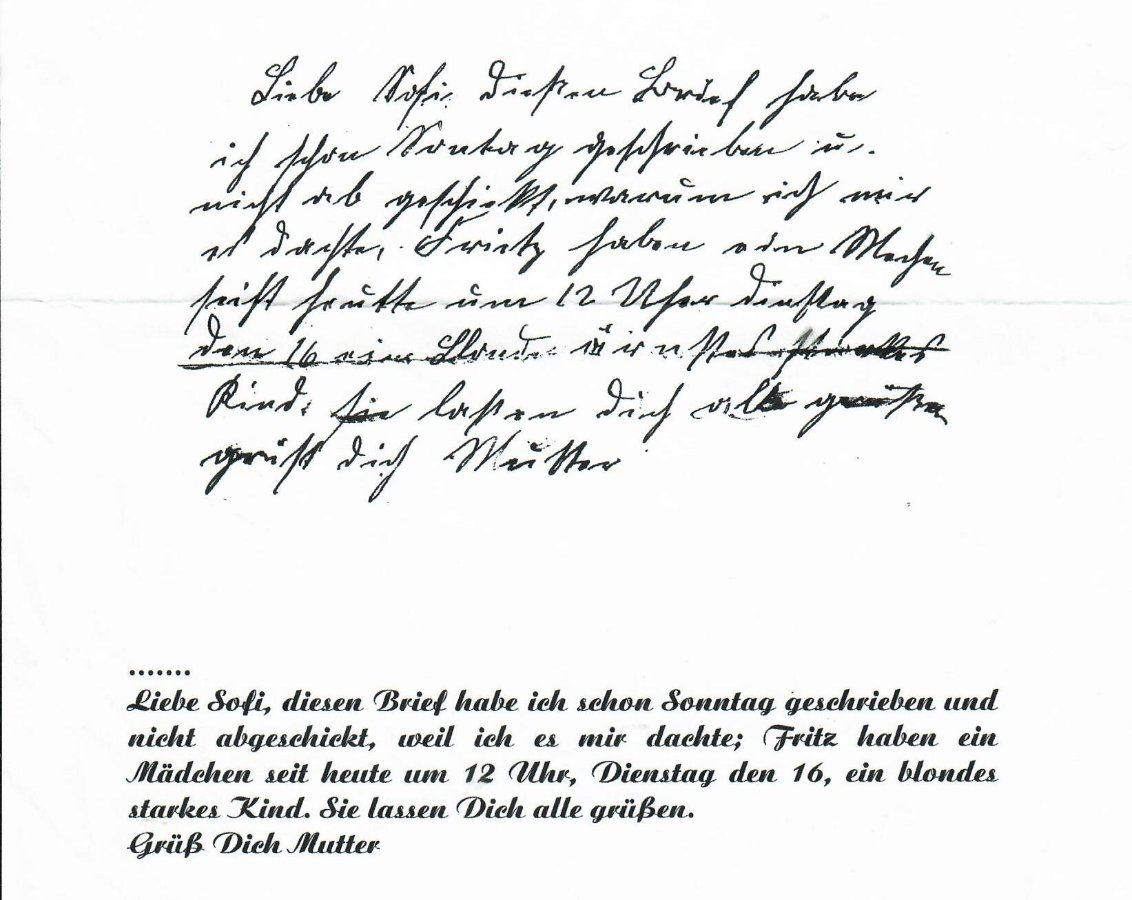 Liebe Sofi diesen Brief habe
ich schon Sontag geschrieben u.
nicht ab geschickt, warum ich mir
es dachte, Frietz haben ein Mechen
seist heutte um 12 Uher dinstag
den 16 ein Blonde
Kind. sie lassen dich alle grüßen
grüst dich Mutter
.......
Liebe Sofi, diesen Brief habe ich schon Sonntag geschrieben und
nicht abgeschickt, weil ich es mir dachte; Fritz haben ein
Mädchen seit heute um 12 Uhr, Dienstag den 16, ein blondes
starkes Kind. Sie lassen Dich alle grüßen.
Grüß Dich Mutter